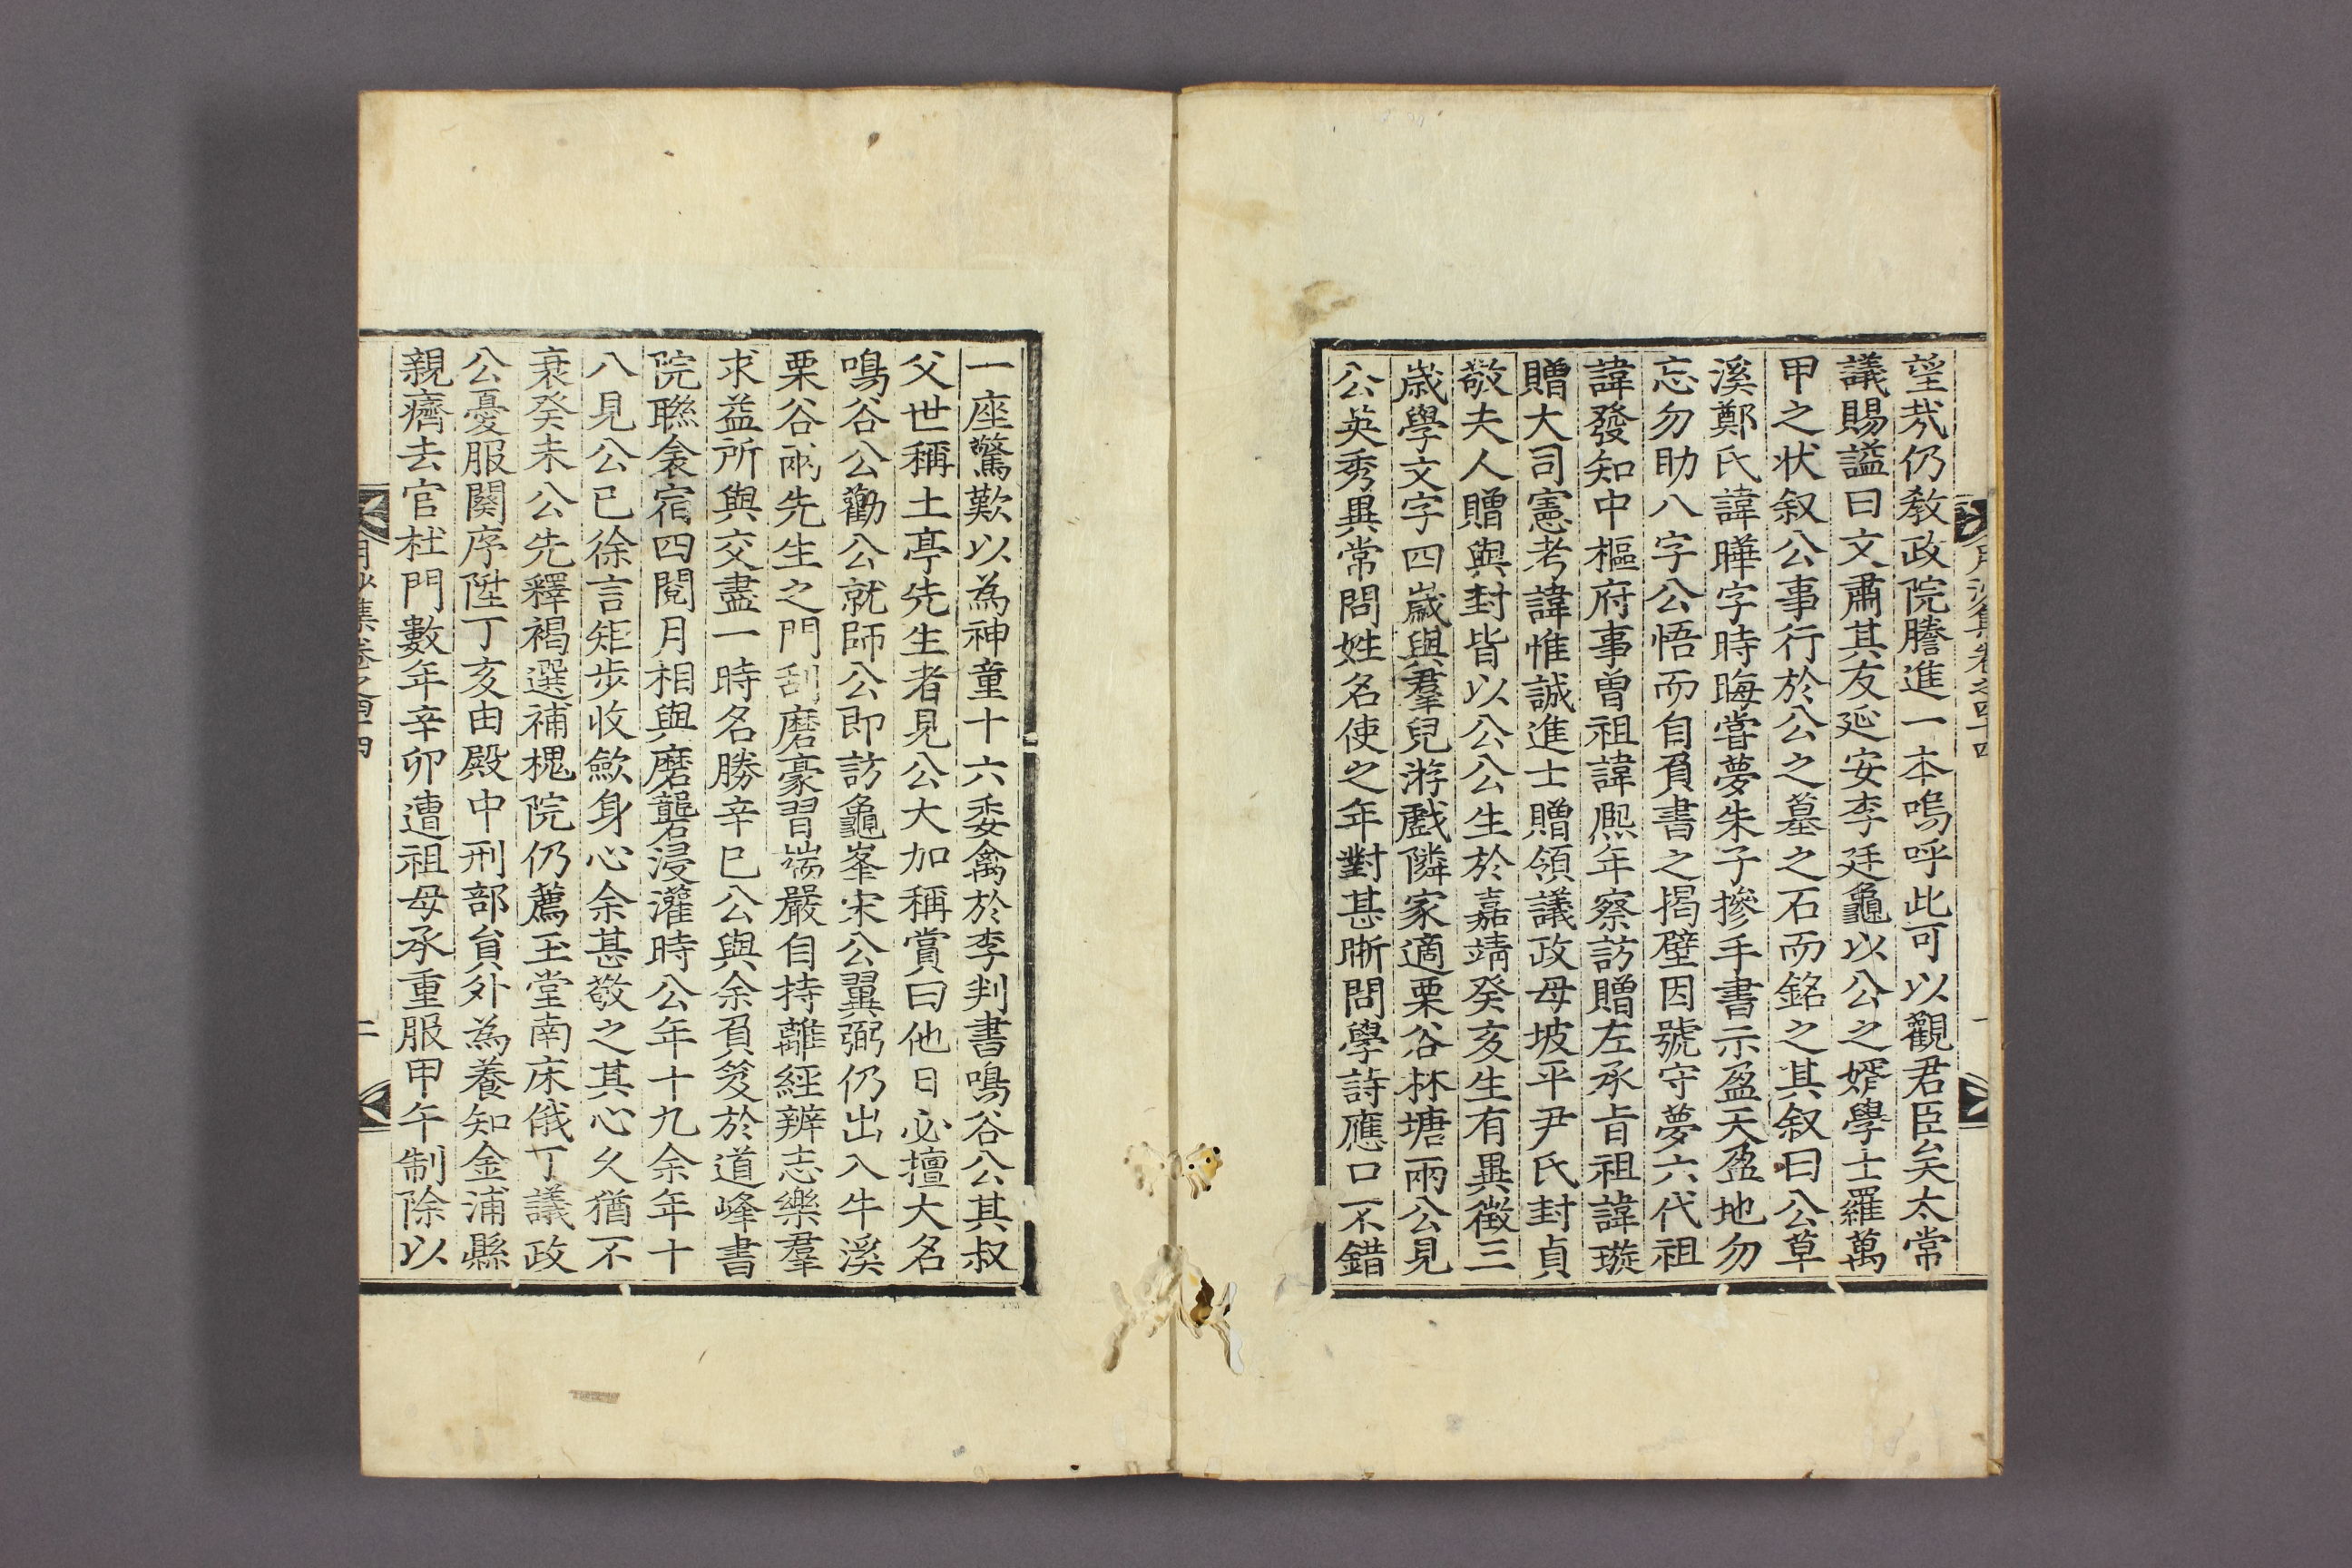 望哉仍敎政院謄進一本嗚呼此可以觀君臣矣太常
議賜謚曰文肅其友延安李廷龜以公之婿學士羅萬
甲之状叙公事行於公之墓之石而銘之其叙曰公草
溪鄭氏諱曄字時晦嘗夢朱子摻手書示盈天盈地勿
忘勿助八字公悟而自負書之揭壁因號守夢六代祖
諱發知中樞府事曽祖諱熈年察訪贈左承㫖祖諱璇
贈大司憲考諱惟誠進士贈領議政母坡平尹氏封貞
敬夫人贈與封皆以公公生於嘉靖癸亥生有異徵三
歲學文字四歲與羣兒游戱隣家適栗谷林塘兩公見
公英秀異常問姓名使之年對甚晣問學詩應口不錯
月沙集卷之四十四
一
一座驚歎以為神童十六委禽於李判書鳴谷公其叔
父世稱土亭先生者見公大加稱賞曰他日必擅大名
鳴谷公勸公就師公即訪龜峯宋公翼弼仍出入牛溪
栗谷兩先生之門刮磨豪習端嚴自持離經辨志樂羣
求益所與交盡一時名勝辛巳公與余負笈於道峰書
院聯衾宿四閱月相與磨礱浸灌時公年十九余年十
八見公已徐言矩步收斂身心余甚敬之其心久猶不
衰癸未公先釋褐選補槐院仍薦玉堂南床俄丁議政
公憂服闋序陞丁亥由殿中刑部貟外為養知金浦縣
親癠去官杜門數年辛卯遭祖母承重服甲午制除以
月沙集卷之四十四
二